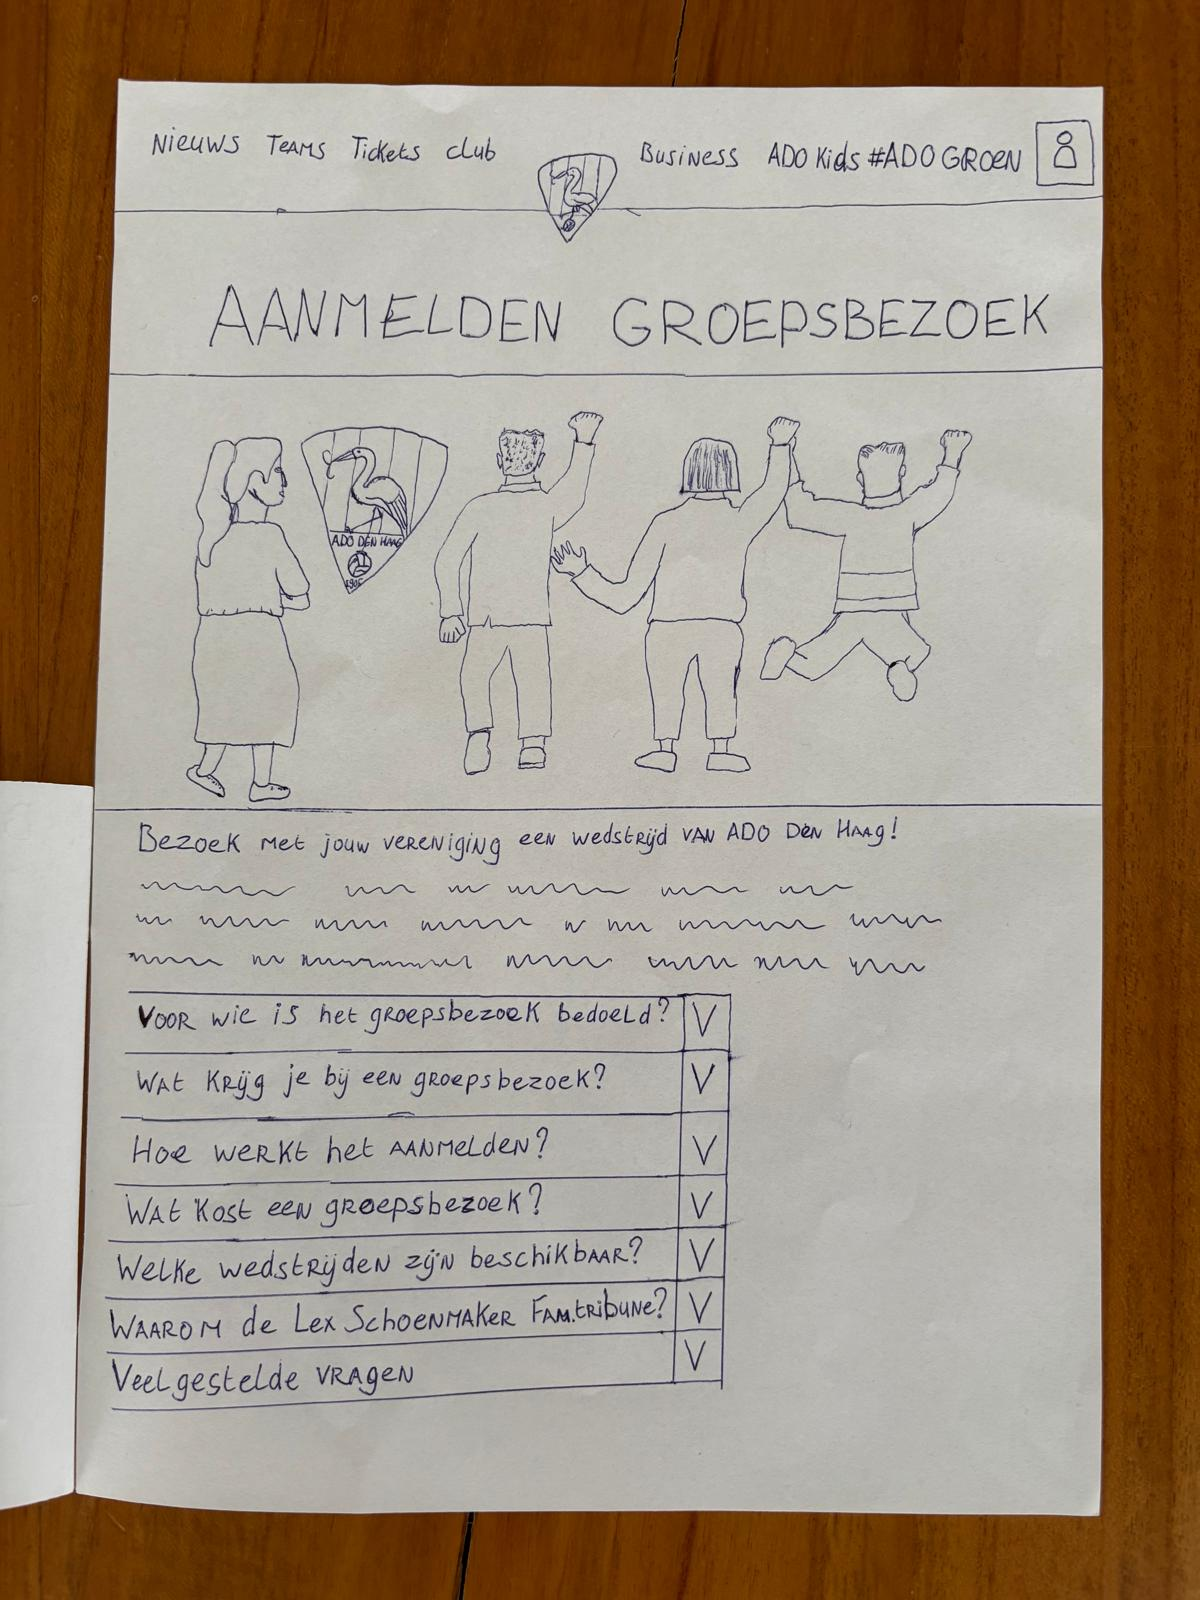 Nieuws Teams Tickets club Business ADO Kids #ADO GROEN
AANMELDEN GROEPSBEZOEK
ADO DEN HAAG
1905
Bezoek met jouw vereniging een wedstrijd van ADO Den Haag!
Voor wie is het groepsbezoek bedoeld? V
Wat krijg je bij een groepsbezoek? V
Hoe werkt het aanmelden? V
Wat kost een groepsbezoek? V
Welke wedstrijden zijn beschikbaar? V
Waarom de Lex Schoenmaker Fam.tribune? V
Veelgestelde vragen V